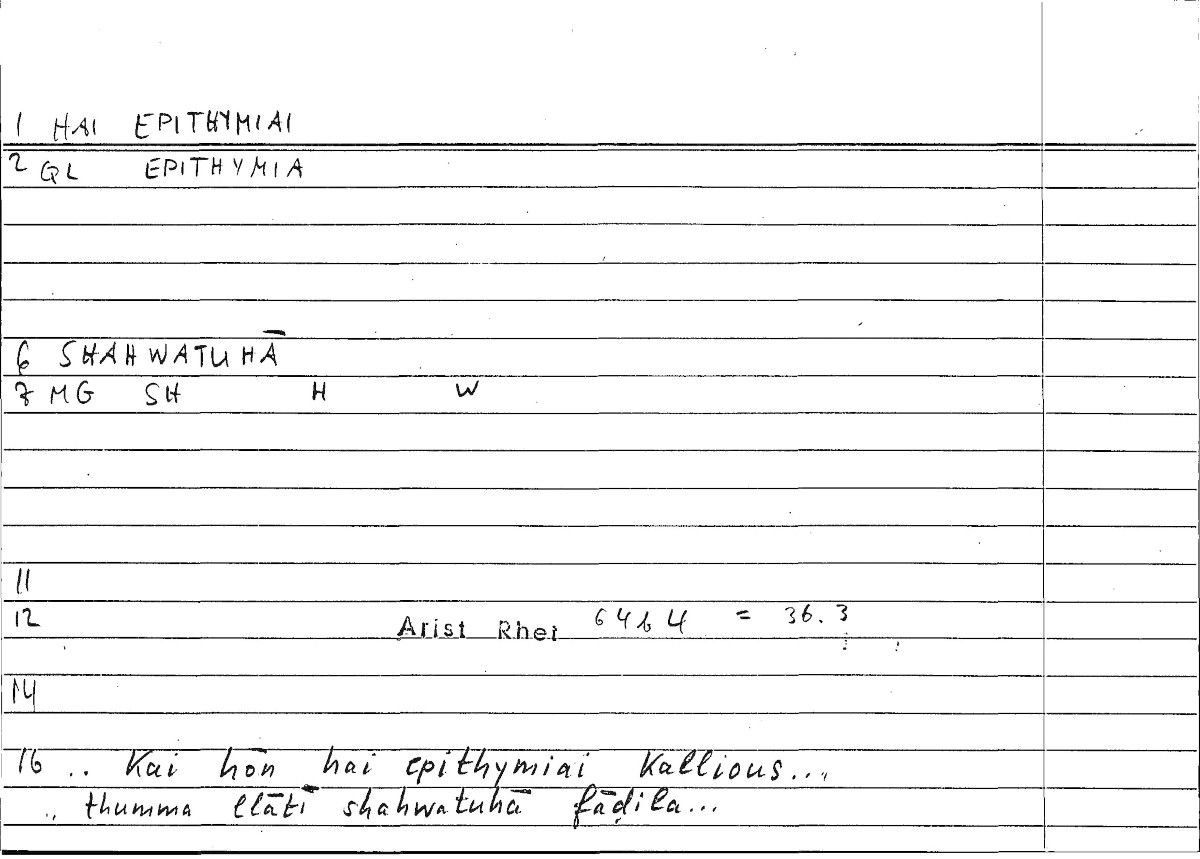 1 HAI EPITHYMIAI
2 GL EPITHYMIA
6 SHAHWATUHĀ
7 MG SH H W
11
12 Arist Rhet 64b4 = 36.3
14
16 .. Kai hōn hai epithymiai Kallious...
.. thumma llātī shahwatuhā fāḍila...